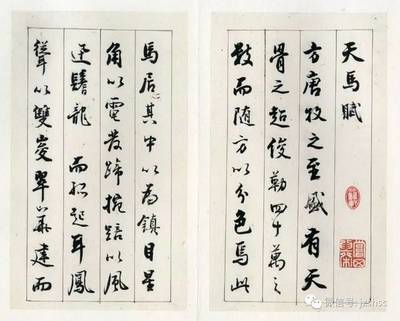 天馬賦
方唐牧之至盛有天
骨之超俊勒四十萬之
數而随方以分色焉此
馬居其中以為鎮目星
角以電發蹄椀踣以風
迅鬐龍 而孤起耳鳳
聳以雙峻翠華建而
微信号: jzshss